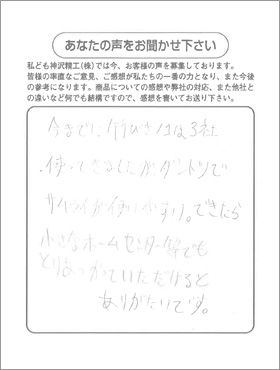 あなたの声をお聞かせ下さい
私ども神沢精工(株)では今、お客様の声を募集しております。
皆様の率直なご意見、ご感想が私たちの一番の力となり、また今後
の参考になります。商品についての感想や弊社の対応、また他社と
の違いなど何でも結構ですので、感想を書いてお送り下さい。
今までに竹びきノコは3社
使ってきましたがダントツで
サムライが使いやすい。できたら
小さなホームセンター等でも
とりあつかっていただけると
ありがたいです。